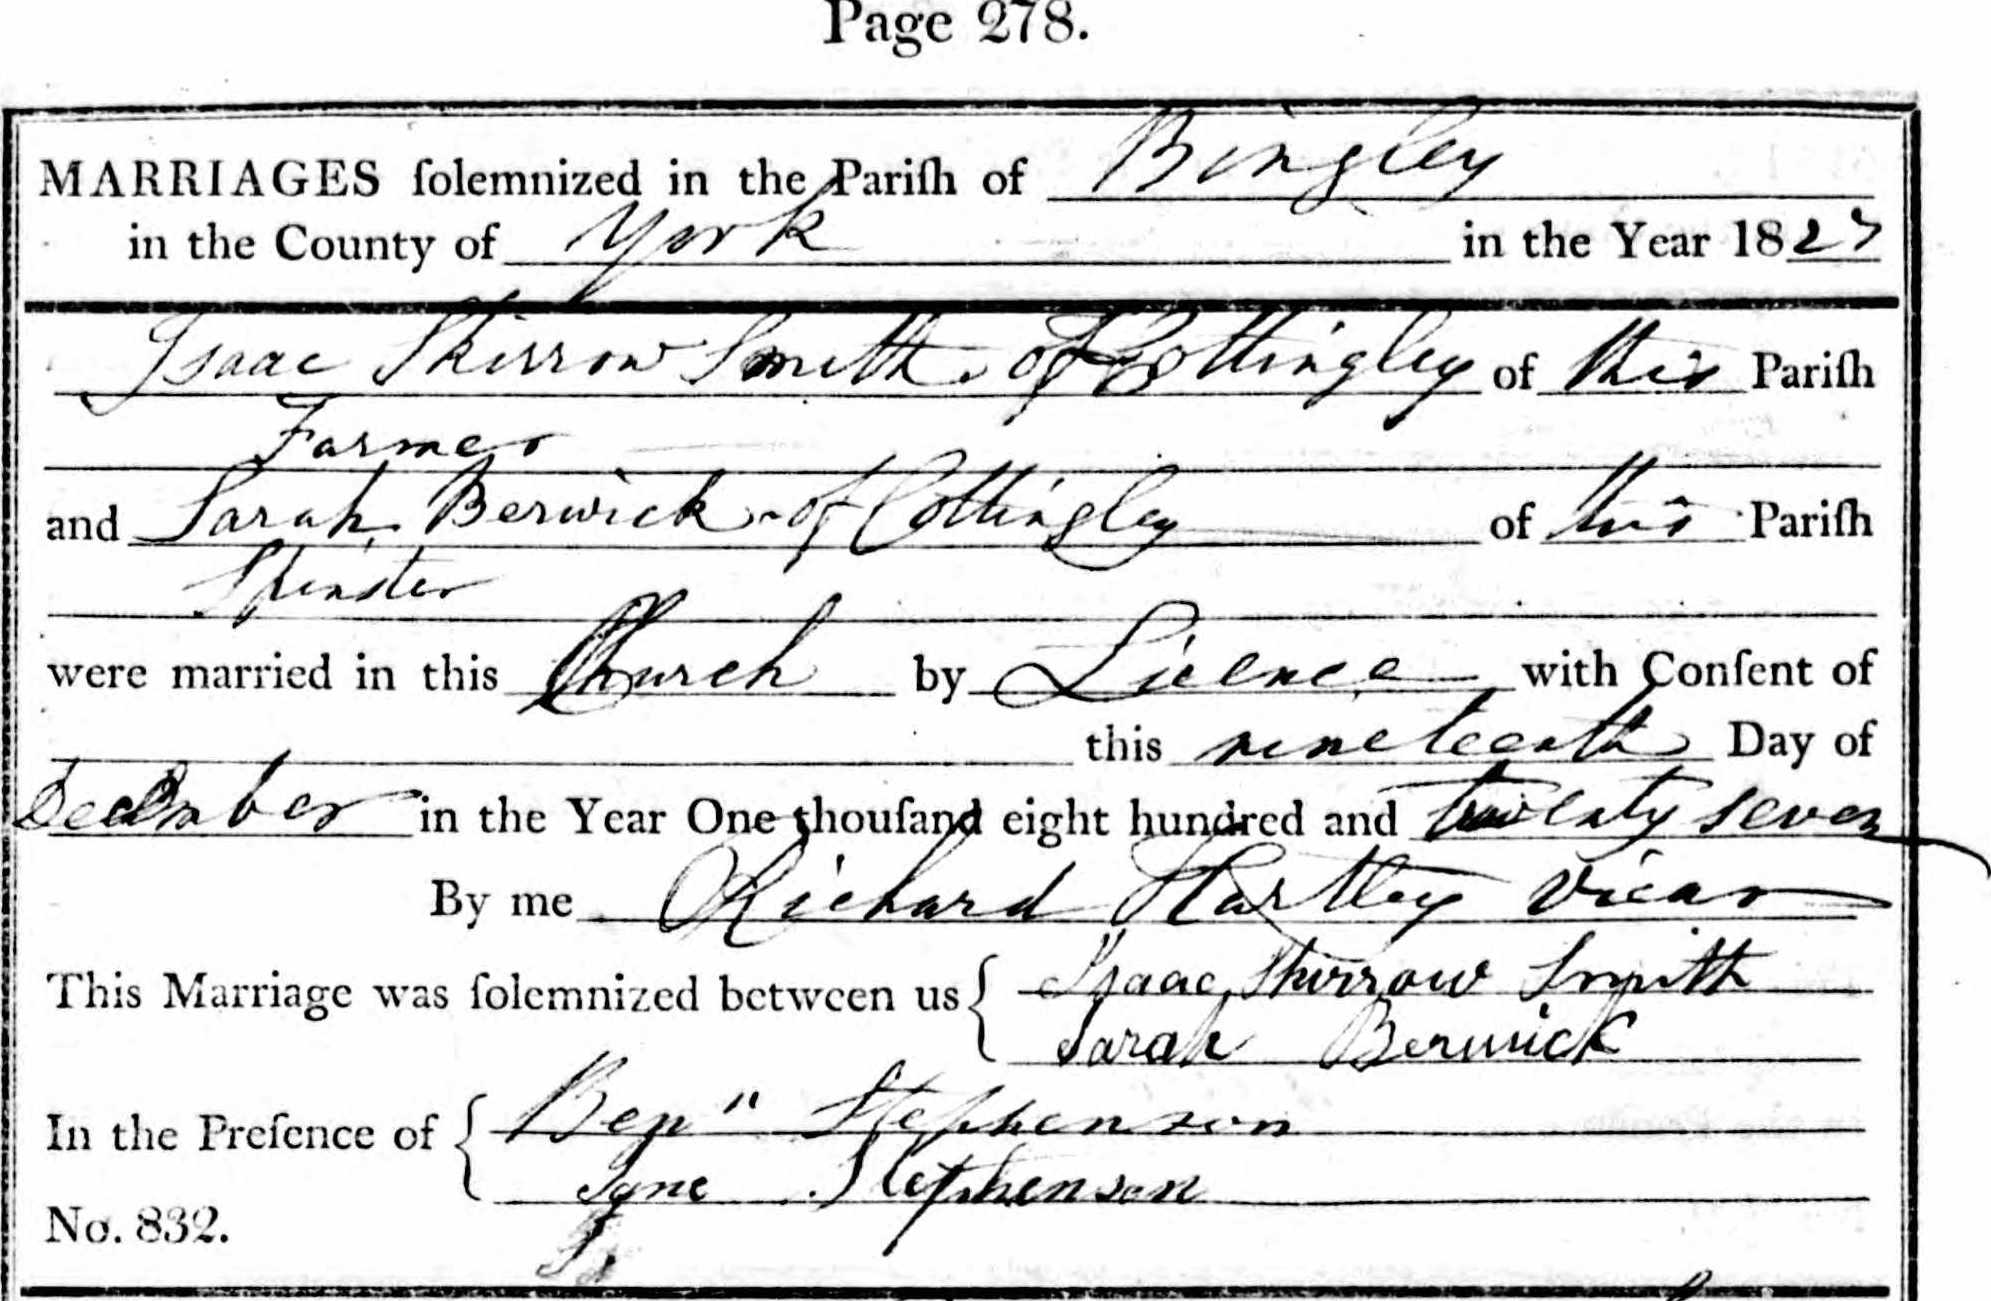 Page 278.
MARRIAGES ſolemnized in the Pariſh of Bingley
in the County of York in the Year 1827
Isaac Skirrow Smith of Cottingley of this Pariſh
Farmer
and Sarah Berwick of Cottingley of this Pariſh
Spinster
were married in this Church by Licence with Conſent of
this nineteenth Day of
December in the Year One thouſand eight hundred and twenty seven
By me Richard Hartley Vicar
This Marriage was ſolemnized between us { Isaac Skirrow Smith
Sarah Berwick
In the Preſence of { Benjn Stephenson
Jane Stephenson
No. 832.